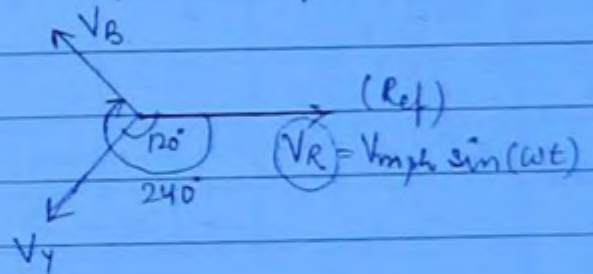 V_B
(Ref)
120°
V_R = Vmph sin(ωt)
240°
V_Y